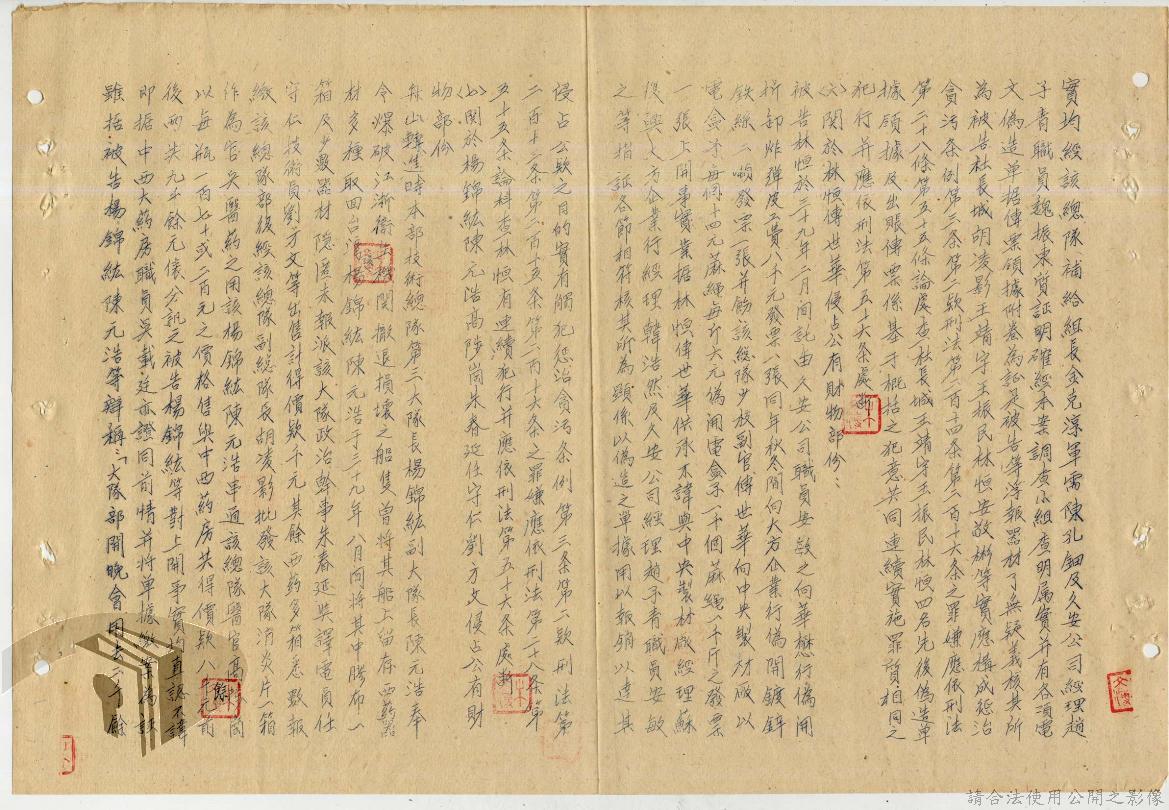 實均經該總隊補給組長金克淳軍需陳孔鈿及久安公司經理趙
子青職員魏振東質証明確經本案調查小組查明属實并有各項電
文偽造单据傳票領據附卷為証是被告等浮報器材了無疑義核其所
為被告杜長城胡凌影王靖宇王振民林恒安敬彬等實應構成惩治
貪污条例第三条第二款刑法第二百十四条第二百十六条之罪嫌應依刑法
第二十八条第五十五条論處查杜長城王靖宇王振民林恒四名先後偽造单
據領據及出賬傳票係基于概括之犯意共同連續實施罪質相同之
犯行并應依刑法第五十六条處断
㈥関於林恒傅世華侵占公有財物部份：
被告林恒於三十九年二月間託由久安公司職員安敏之向華懋行偽開
拆卸炸彈皮工費八千元發票八張同年秋冬間向大方企業行偽開鍍鋅
鉄絲二噸發票一張并飭該總隊少校副官傅世華向中央製材廠以
電盒子每個十四元蔴繩每斤六元偽開電盒子一千個蔴繩一千斤之發票
一張上開事實業据林恒傅世華供承不諱與中央製材廠經理蘇
復興大方企業行經理韓浩然及久安公司經理趙子青職員安敏
之等指証各節相符核其所為顯係以偽造之单據用以報銷以達其
侵占公款之目的實有觸犯惩治貪污条例第三条第二款刑法第
二百十三条第二百十五条第二百十六条之罪嫌應依刑法第二十八条第
五十五条論科查林恒有連續犯行并應依刑法第五十六条處断
㈦関於楊錦紘陳元浩高陟崗朱春延任守仁劉方文侵占公有財
物部份
舟山轉進時本部技術總隊第三大隊長楊錦紘副大隊長陳元浩奉
令爆破江浙衢王機関撤退損壞之船隻曾將其船上留存西藥器
材多種取回台湾楊錦紘陳元浩于三十九年八月間將其中膠布一
箱及少數器材隐匿未報派該大隊政治幹事朱春延奬譯電員任
守仁技術員劉方文等出售計得價欵千元其餘西藥多箱悉數報
繳該總隊部後經該總隊副總隊長胡凌影批發該大隊消炎片一箱
作為官兵醫藥之用該楊錦紘陳元浩串通該總隊醫官高陟崗
以每瓶一百七十或二百元之價格售與中西藥房共得價欵八千元有
後兩共九千餘元儴分訊之被告楊錦紘等對上開事實均直認不諱
即据中西大藥房職員吳戴廷亦證同前情并將单據繳案為証
雖据被告楊錦紘陳元浩等辯稱：「大隊部開晚會用去二千餘
請合法使用公開之影像